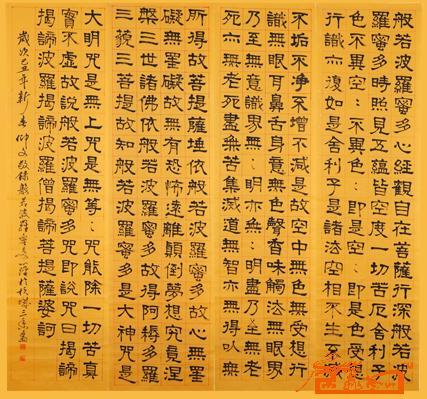 般若波羅蜜多心經觀自在菩薩行深般若波
羅蜜多時照見五蘊皆空度一切苦厄舍利子
色不異空:不異色:即是空:即是色受想
行識亦復如是舍利子是諸法空相不生不滅
不垢不净不增不減是故空中無色無受想行
識無眼耳鼻舌身意無色聲香味觸法無眼界
乃至無意識界無:明亦無:明盡乃至無老
死亦無老死盡無苦集滅道無智亦無得以無
所得故菩提薩埵依般若波羅蜜多故心無罣
礙無罣礙故無有恐怖遠離顛倒夢想究竟涅
槃三世諸佛依般若波羅蜜多故得阿耨多羅
三藐三菩提故知般若波羅蜜多是大神咒是
大明咒是無上咒是無等:咒能除一切苦真
實不虛故說般若波羅蜜多咒即說咒曰揭諦
揭諦波羅揭諦波羅僧揭諦菩提薩婆訶
歲次己丑年新春仲文敬錄般若波羅蜜多